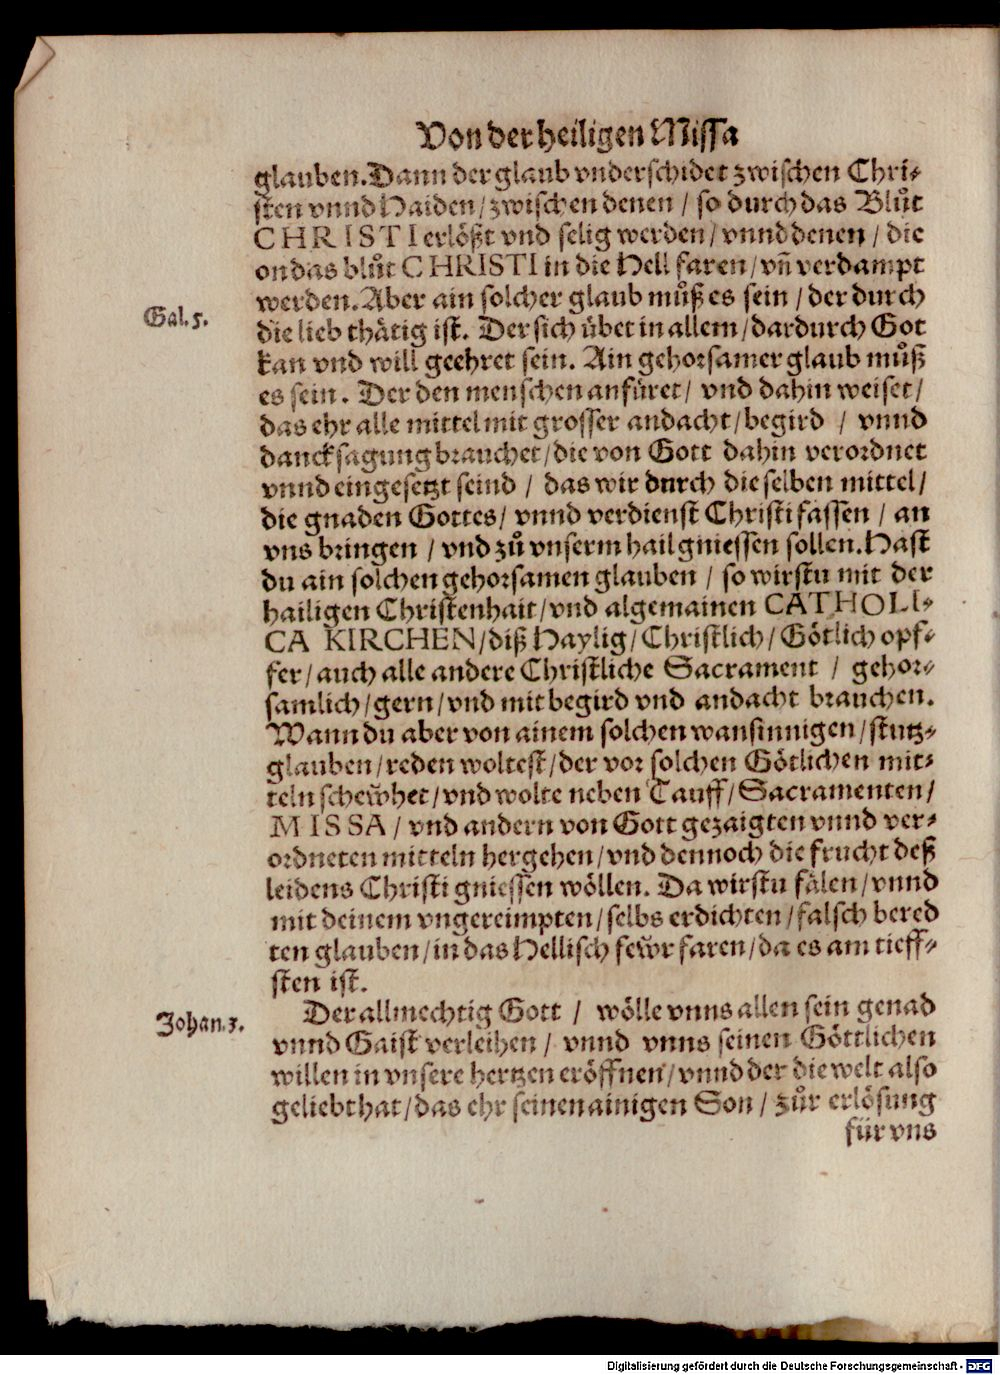 Von der heiligen Missa
glauben. Dann der glaub vnderschidet zwischen Chri-
sten vnnd Haiden / zwischen denen / so durch das Blůt
CHRISTI erlößt vnd selig werden / vnnd denen / die
on das blůt CHRISTI in die Hell faren / vñ verdampt
werden. Aber ain solcher glaub můß es sein / der durch
Gal. 5.
die lieb thätig ist. Der sich übet in allem / dardurch Got
kan vnd will geehret sein. Ain gehorsamer glaub můß
es sein. Der den menschen anfüret / vnd dahin weiset /
das ehr alle mittel mit grosser andacht / begird / vnnd
dancksagung brauchet / die von Gott dahin verordnet
vnnd eingesetzt seind / das wir durch die selben mittel /
die gnaden Gottes / vnnd verdienst Christi fassen / an
vns bringen / vnd zů vnserm hail gniessen sollen. Hast
du ain solchen gehorsamen glauben / so wirstu mit der
hailigen Christenhait / vnd algemainen CATHOLI-
CA KIRCHEN / diß Haylig / Christlich / Götlich opf-
fer / auch alle andere Christliche Sacrament / gehor-
samlich / gern / vnd mit begird vnd andacht brauchen.
Wann du aber von ainem solchen wansinnigen / stutz-
glauben / reden woltest / der vor solchen Götlichen mit-
teln schewhet / vnd wolte neben Tauff / Sacramenten /
MISSA / vnd andern von Gott gezaigten vnnd ver-
ordneten mitteln hergehen / vnd dennoch die frucht deß
leidens Christi gniessen wöllen. Da wirstu fälen / vnnd
mit deinem vngereimpten / selbs erdichten / falsch bered
ten glauben / in das Hellisch fewr faren / da es am tieff-
sten ist.
Der allmechtig Gott / wölle vnns allen sein genad
Johan. 3.
vnnd Gaist verleihen / vnnd vnns seinen Göttlichen
willen in vnsere hertzen eröffnen / vnnd der die welt also
geliebt hat / das ehr seinen ainigen Son / zůr erlösung
für vns
Digitalisierung gefördert durch die Deutsche Forschungsgemeinschaft - DFG